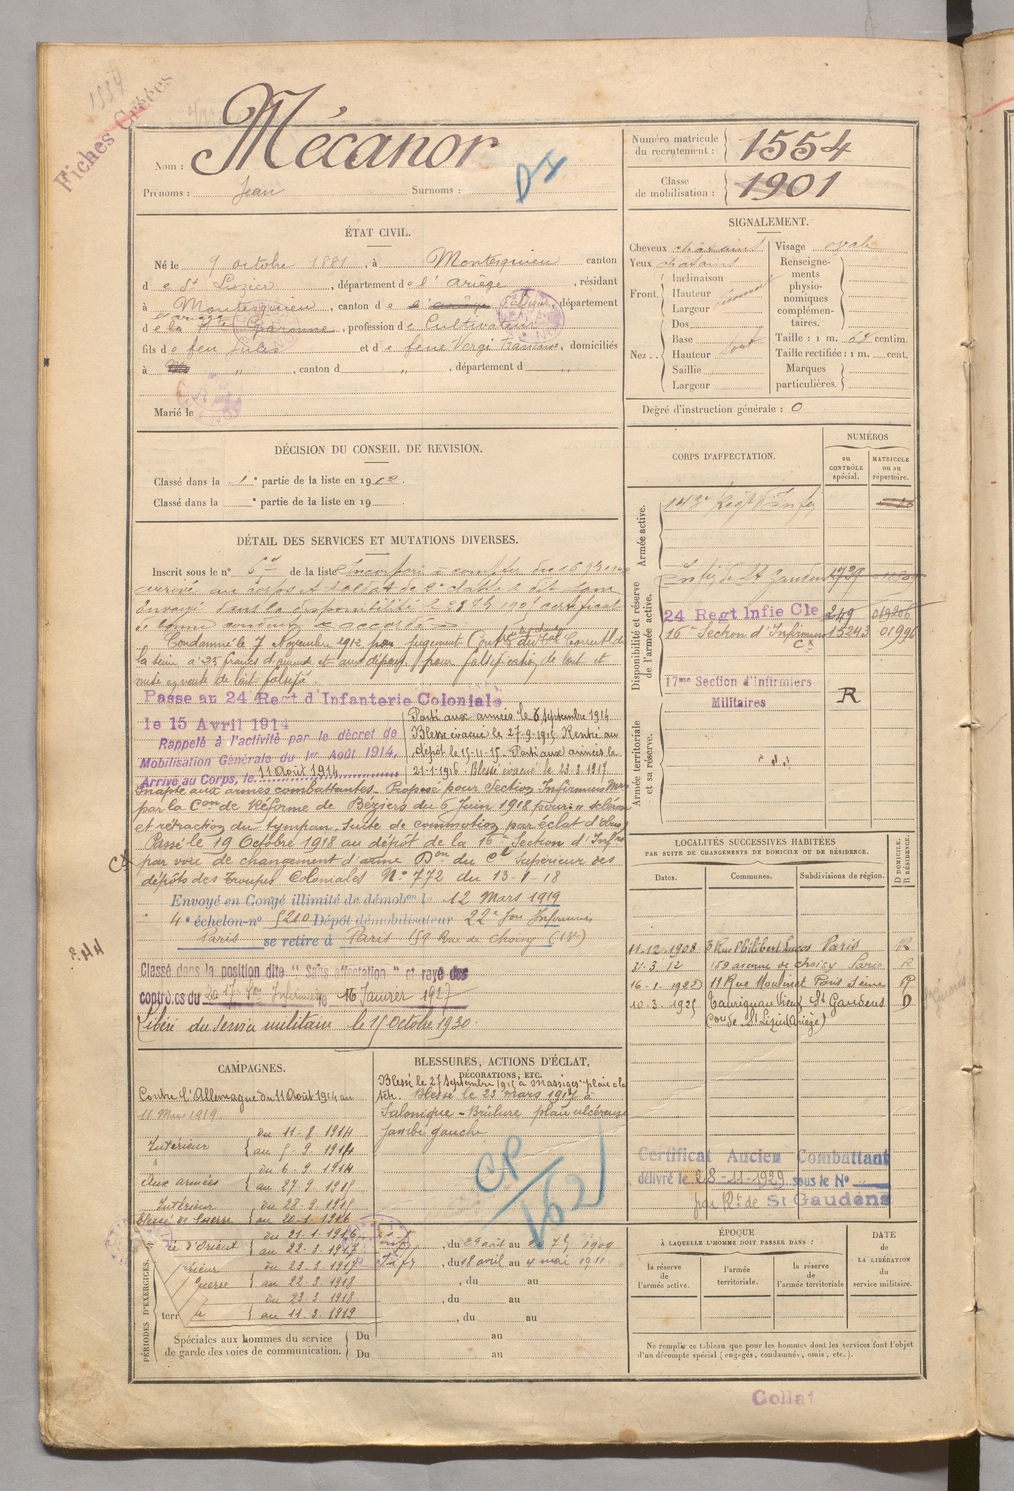 1554
Fiches Créées
Nom : Mécanor
Prénoms : Jean Surnoms :
Numéro matricule du recrutement : 1554
Classe de mobilisation : 1901
ÉTAT CIVIL.
Né le 9 octobre 1881, à Montesquieu canton
de St Lizier, département de l'Ariège, résidant
à Montesquieu, canton de St Lizier, département
de la Hte Garonne, profession de Cultivateur
fils de feu Jules et de feue Vergé Francoise, domiciliés
à " , canton d " , département d "
Marié le
SIGNALEMENT.
Cheveux chatains Visage ovale
Yeux chatains
Front. Inclinaison
Hauteur
Largeur
Nez. Dos
Base
Hauteur
Saillie
Largeur
Renseignements physionomiques complémentaires.
Taille : 1 m. 64 centim.
Taille rectifiée : 1 m. cent.
Marques particulières.
Degré d'instruction générale : 0
DÉCISION DU CONSEIL DE REVISION.
Classé dans la 1e partie de la liste en 1902.
Classé dans la e partie de la liste en 19
DÉTAIL DES SERVICES ET MUTATIONS DIVERSES.
Inscrit sous le n° de la liste Incorporé à compter du 16
arrivé au corps et soldat de 2e classe le dit jour
Envoyé dans la disponibilité le certificat
de bonne conduite accordé
Condamné le 7 Novembre 1912 par jugement du
la Seine à 25 francs d'amende et aux dépens pour falsification de lait et
mise en vente de lait falsifié.
Passe au 24 Regt d'Infanterie Coloniale
le 15 Avril 1914
Rappelé à l'activité par le décret de
Mobilisation Générale du 1er Août 1914.
Arrivé au Corps, le 11 Août 1914
Parti aux armées le 6 septembre 1914
Blessé évacué le 27-9-1915 Rentré au
dépôt le 15-11-15. Parti aux armées le
21-1-1916 Blessé évacué le 23-3-1917
Inapte aux armes combattantes - Proposé pour Section Infirmiers
par la Con de Réforme de Béziers du 6 Juin 1918 pour "sclérose
et rétraction du tympan, suite de commotion par éclat d'obus
Passé le 19 Octobre 1918 au dépôt de la 16e Section d'Infres
par voie de changement d'arme Don du Ct Supérieur des
dépôts des Troupes Coloniales N° 772 du 13-8-18
Envoyé en Congé illimité de démobon le 12 Mars 1919
4e échelon n° 5210 Dépôt démobilisateur 22e Son Infirmiers
Paris se retire à Paris 159 Rue de Choisy (13e)
Classé dans la position dite "Sans affectation" et rayé des
contrôles du 17e Son Infirmiers le 16 Janvier 1927
Libéré du service militaire le 15 Octobre 1930.
CORPS D'AFFECTATION.
NUMÉROS
au CONTRÔLE spécial.
MATRICULE ou au répertoire.
Armée active.
143e Régt d'Infie
Disponibilité et réserve de l'armée active.
Infie de St Gaudens 1739
24 Regt Infie Cle 249 019206
16e Section d'Infirmiers 15243 01996
17me Section d'Infirmiers
Militaires R
Armée territoriale et sa réserve.
LOCALITÉS SUCCESSIVES HABITÉES
PAR SUITE DE CHANGEMENTS DE DOMICILE OU DE RÉSIDENCE.
Dates. Communes. Subdivisions de région. D DOMICILE. R RÉSIDENCE.
11.12.1908 3 Rue Philibert Lucos Paris R
31.3.12 159 avenue de choisy Paris R
16-1-1920 11 Rue Moulinet Paris Seine R
10.3.1925 Taurignan Vieux St Gaudens D
(con de St Lizier Ariège)
CAMPAGNES.
Contre l'Allemagne du 11 Août 1914 au
11 Mars 1919
Intérieur du 11-8-1914
au 5-9-1914
Aux armées du 6-9-1914
au 27-9-1915
Intérieur du 28-9-1915
Blessé de Guerre au 20-1-1916
d'Orient du 21-1-1916
au 22-3-1917
du 23-3-1917
au 22-3-1918
du 23-3-1918
au 11-3-1919
BLESSURES, ACTIONS D'ÉCLAT,
DÉCORATIONS, ETC.
Blessé le 27 septembre 1915 à Massiges - plaie à la
tête. Blessé le 23 mars 1917 à
Salonique - Brûlure plaie ulcéreuse
jambe gauche
CP
162
Certificat Ancien Combattant
délivré le 28-11-1929 sous le N°
par Rt de St-Gaudens
PÉRIODES D'EXERCICES.
, du au 1909
, du 18 avril au 4 mai 1911
, du au
, du au
, du au
Spéciales aux hommes du service
de garde des voies de communication.
Du au
Du au
ÉPOQUE
À LAQUELLE L'HOMME DOIT PASSER DANS :
la réserve de l'armée active.
l'armée territoriale.
la réserve de l'armée territoriale
DATE de LA LIBÉRATION du service militaire.
Ne remplir ce tableau que pour les hommes dont les services font l'objet
d'un décompte spécial (engagés, condamnés, omis, etc.).
Collat